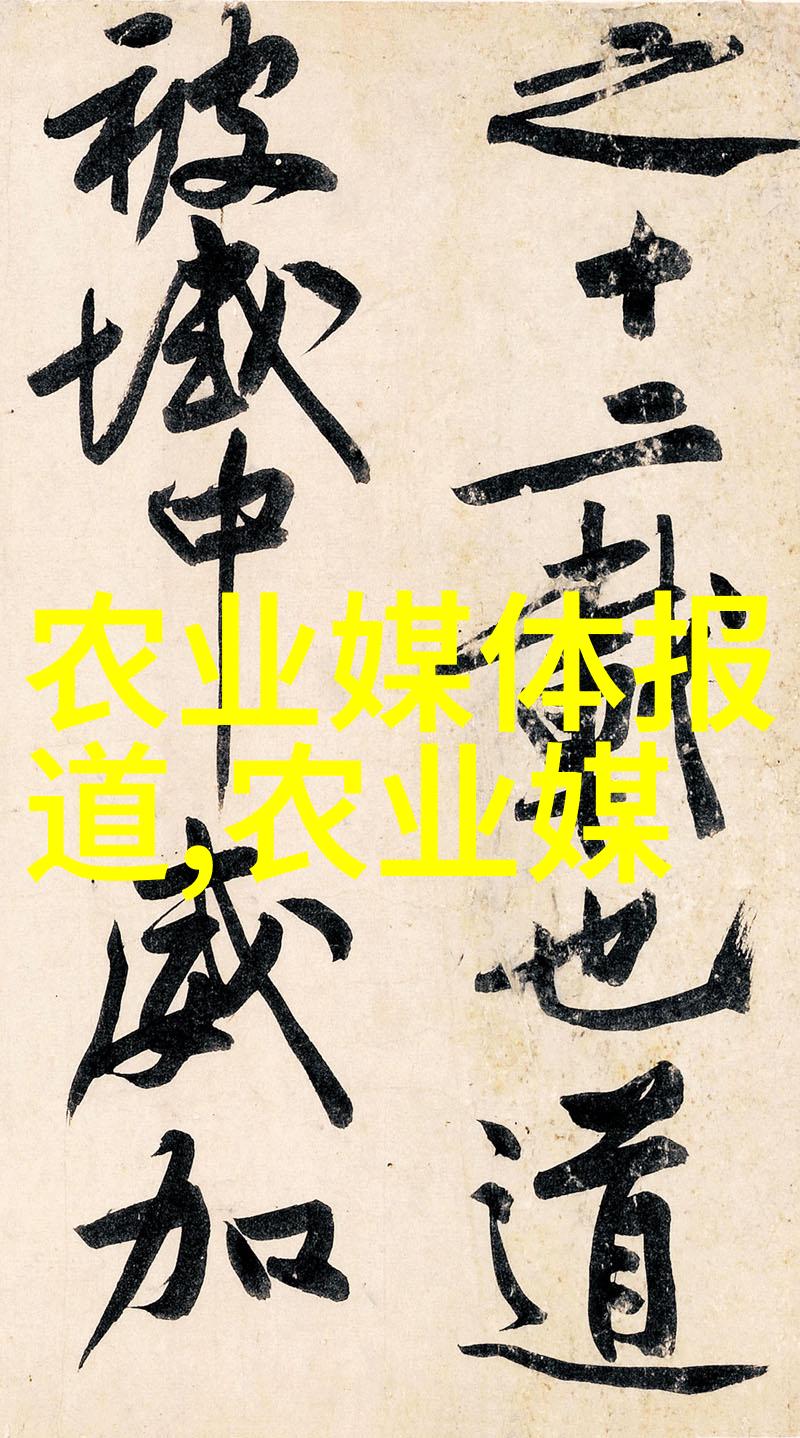 之十二载也道
被域中威加
农业媒体报
道,农业媒